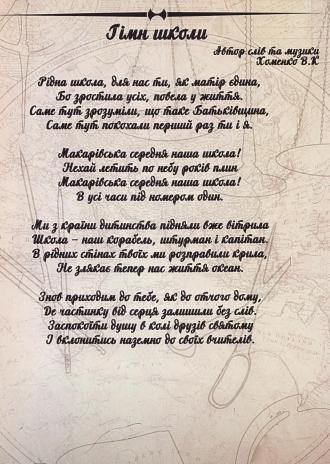 Гімн школи
Автор слів та музики
Хоменко В.К
Рідна школа, для нас ти, як матір єдина,
Бо зростила усіх, повела у життя.
Саме тут зрозуміли, що таке Батьківщина,
Саме тут покохали перший раз ти і я.
Макарівська середня наша школа!
Нехай летить по небу років плин
Макарівська середня наша школа!
В усі часи під номером один.
Ми з країни дитинства підняли вже вітрила
Школа – наш корабель, штурман і капітан.
В рідних стінах твоїх ми розправили крила,
Не злякає тепер нас життя океан.
Знов приходим до тебе, як до отчого дому,
Де частинку від серця залишили без слів.
Заспокоїти душу в колі друзів святому
І вклонитись наземно до своїх вчителів.